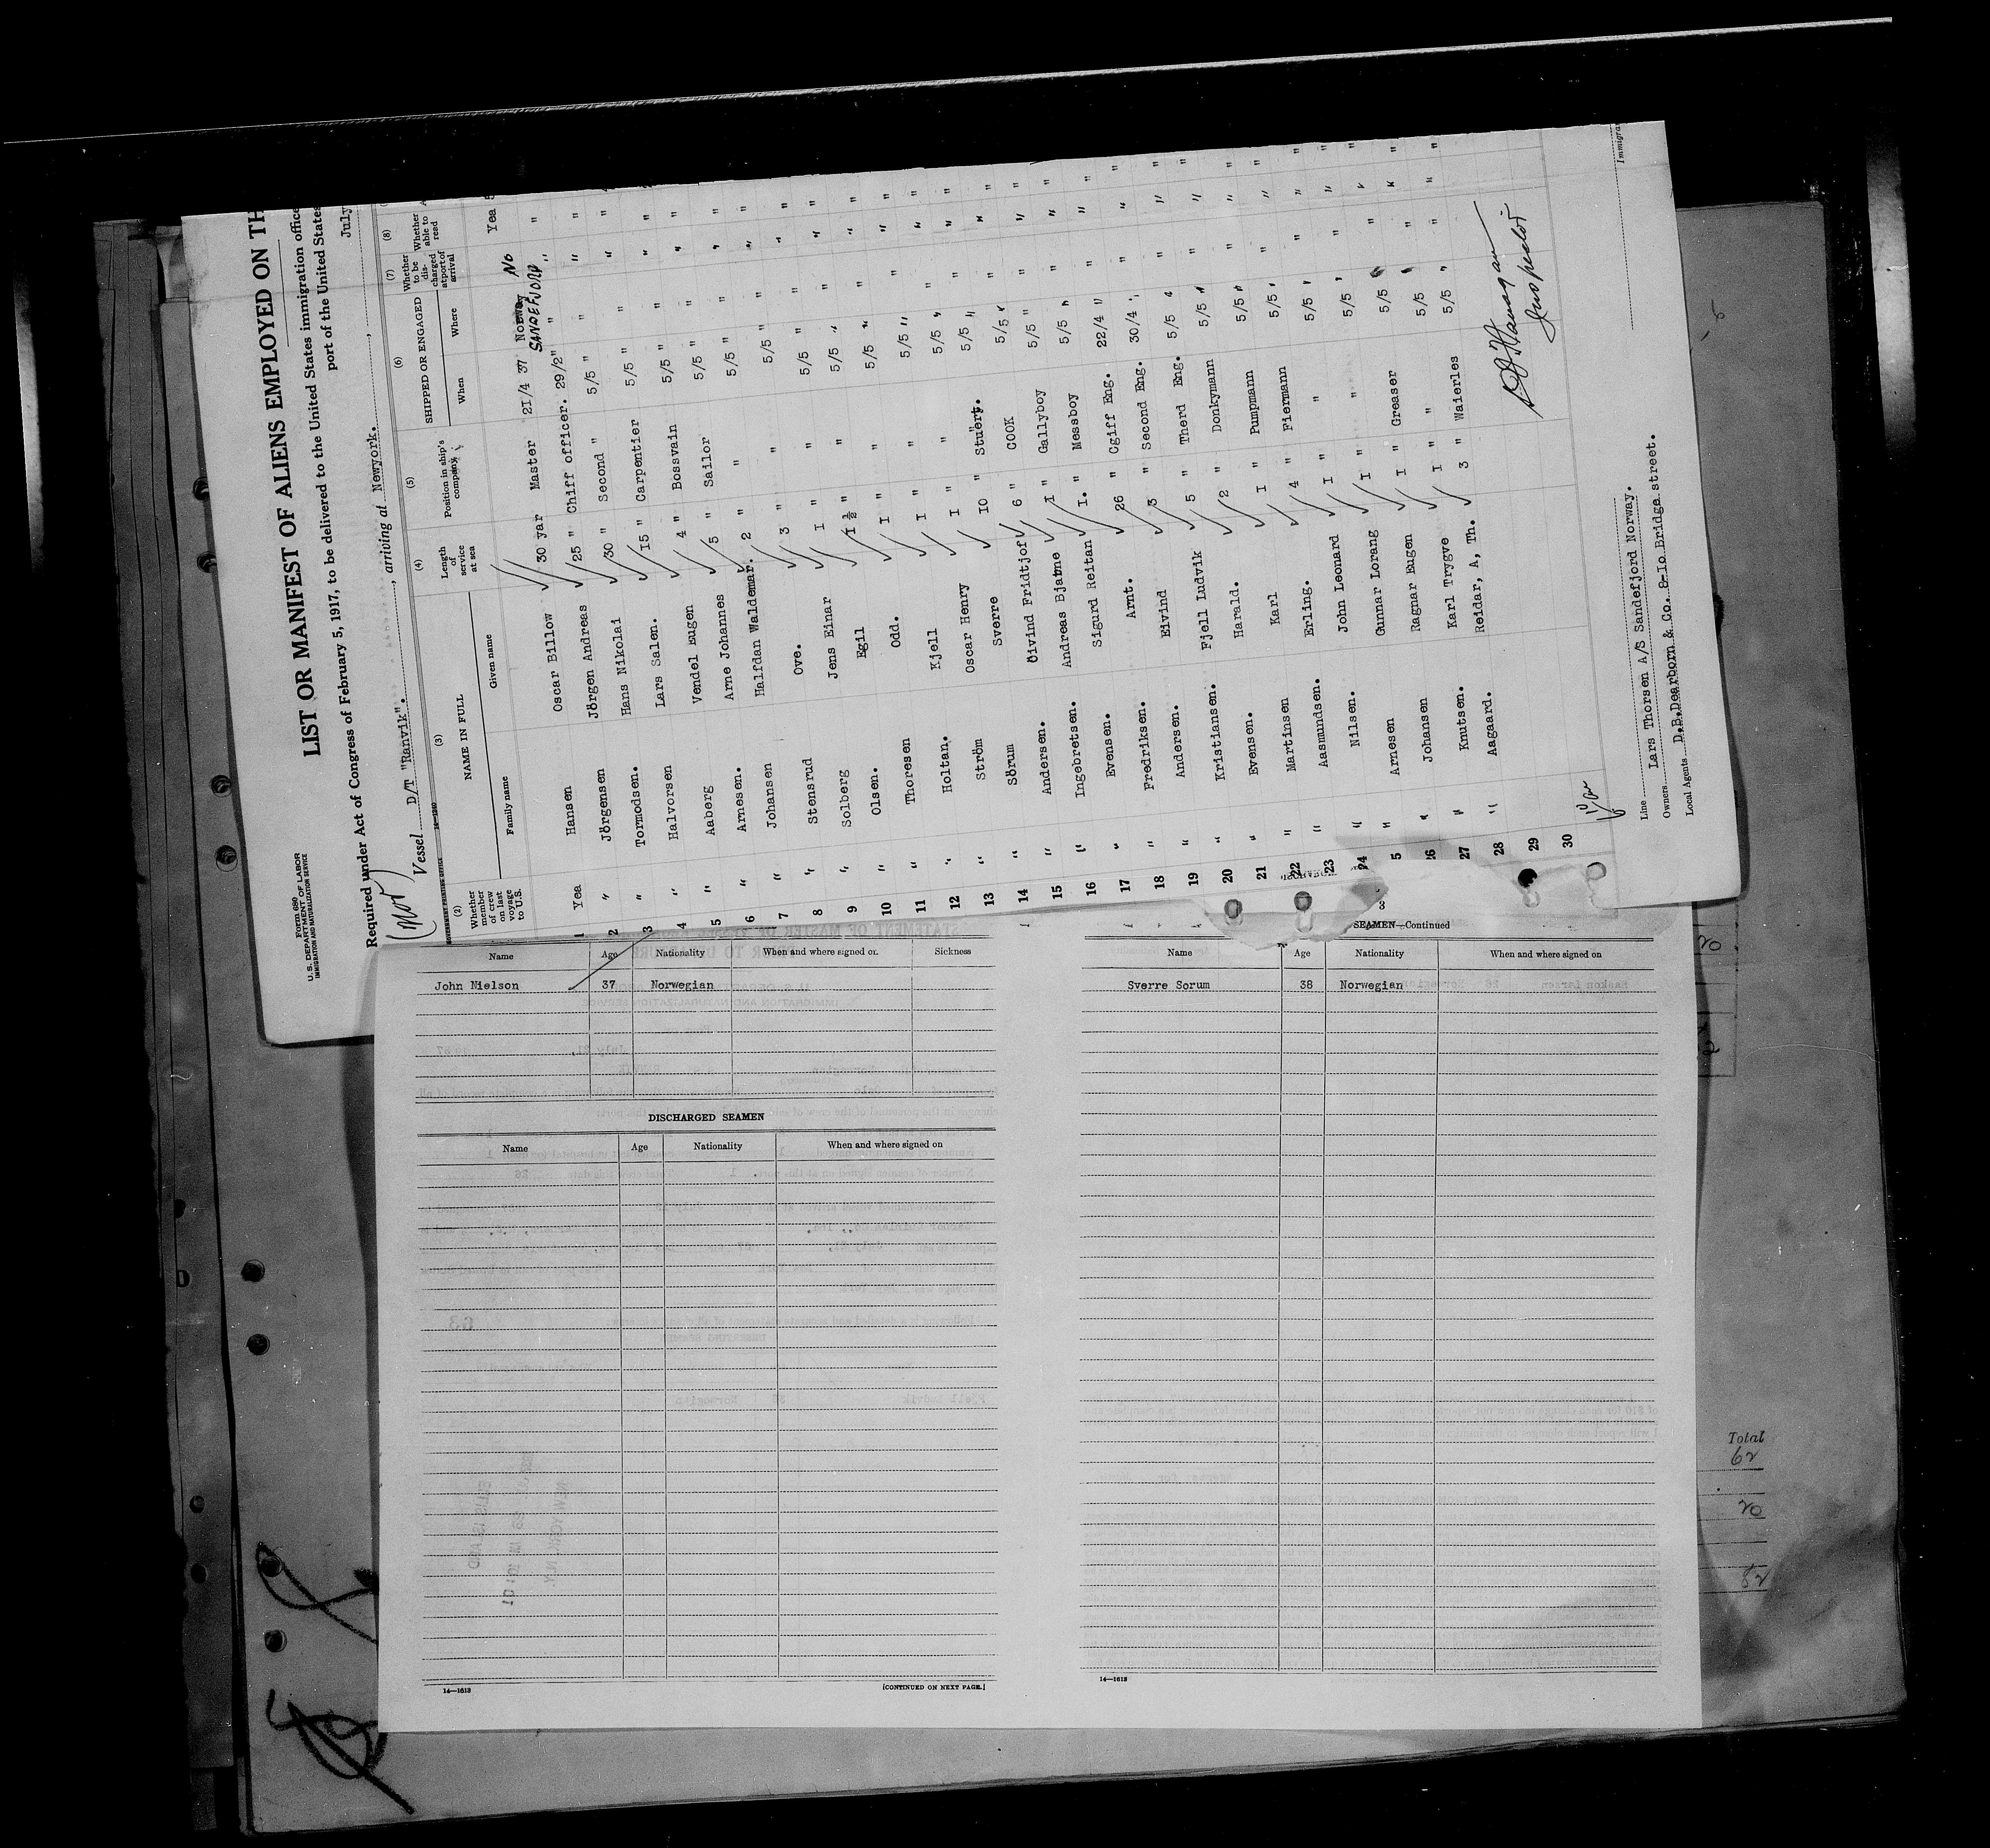 Form 680
U. S. DEPARTMENT OF LABOR
IMMIGRATION AND NATURALIZATION SERVICE
LIST OR MANIFEST OF ALIENS EMPLOYED ON TH
Required under Act of Congress of February 5, 1917, to be delivered to the United States immigration office
port of the United States
(Mot)
Vessel D/T "Ranvik". , arriving at Newyork. , July
(2) (3) (4) (5) (6) (7) (8)
Whether member of crew on last voyage to U.S. NAME IN FULL Length of service at sea Position in ship's company SHIPPED OR ENGAGED Whether to be discharged at port of arrival Whether able to read
Family name Given name When Where
1 Yea Hansen Oscar Billow 30 yar Master 2I/4 37 Norway No Yea
SANDEFJORD
2 " Jörgensen Jörgen Andreas 25 " Chiff officer. 29/2" " " "
3 " Tormodsen. Hans Nikolai 30 " Second " 5/5 " " " "
4 " Halvorsen Lars Salen. I5 " Carpentier 5/5 " " " "
5 " Aaberg Vendel Eugen 4 " Bossvain 5/5 " " " "
6 " Arnesen. Arne Johannes 5 " Sailor 5/5 " " " "
7 " Johansen Halfdan Waldemar. 2 " " 5/5 " " " "
8 " Stensrud Ove. 3 " " 5/5 " " " "
9 " Solberg Jens Einar I " " 5/5 " " " "
10 " Olsen. Egil I ½ " " 5/5 " " " "
11 " Thoresen Odd. I " " 5/5 " " " "
12 " Holtan. Kjell I " " 5/5 " " " "
13 " Ström Oscar Henry I " " 5/5 " " " "
14 " Sörum Sverre IO " Stuert. 5/5 " " " "
15 " Andersen. Öivind Fridtjof 6 " COOK 5/5 " " " "
16 " Ingebretsen. Andreas Bjarne I " Gallyboy 5/5 " " " "
17 " Evensen. Sigurd Reitan I. " Messboy 5/5 " " " "
18 " Fredriksen. Arnt. 26 " Cgiff Eng. 22/4 " " " "
19 " Andersen. Eivind 3 " Second Eng. 30/4 " " " "
20 " Kristiansen. Fjell Ludvik 5 " Therd Eng. 5/5 " " " "
21 " Evensen. Harald. 2 " Donkymann 5/5 " " " "
22 " Martinsen Karl I " Pumpmann 5/5 " " " "
23 " Aasmundsen. Erling. 4 " Fiermann 5/5 " " " "
24 " Nilsen. John Leonard I " " 5/5 " " " "
5 " Arnesen Gunnar Lorang I " " 5/5 " " " "
26 " Johansen Ragnar Eugen I " Greaser 5/5 " " " "
27 " Knutsen. Karl Trygve I " " 5/5 " " " "
28 " Aagaard. Reidar, A, Th. 3 " Waierles 5/5 " " " "
29
30
Inspector
Line
Owners Lars Thorsen A/S Sandefjord Norway.
Local Agents D.B.Dearborn & Co. 8-Io Bridge street.
Immigra
Name Age Nationality When and where signed on Sickness
John Nielson 37 Norwegian
DISCHARGED SEAMEN
Name Age Nationality When and where signed on
14—1613
[CONTINUED ON NEXT PAGE.]
3
SEAMEN—Continued
Name Age Nationality When and where signed on
Sverre Sorum 38 Norwegian
14—1613
Total
62
20
82